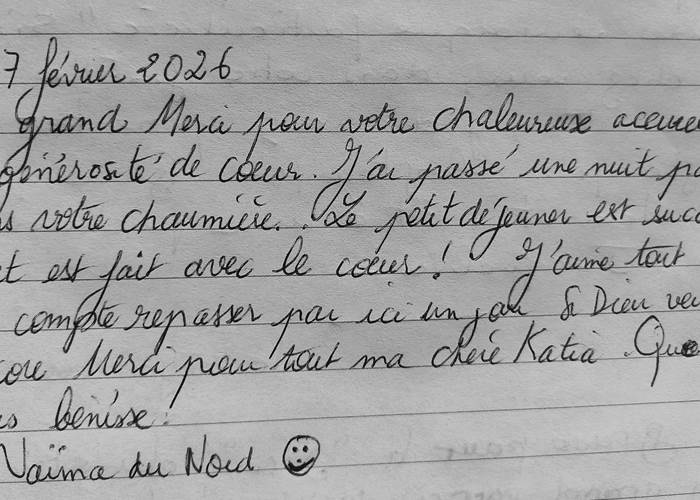 7 février 2026
grand Merci pour votre chaleureuse
générosité de coeur. J'ai passé une nuit
votre chaumière. Le petit déjeuner est
est fait avec le coeur! J'aime tout
compte repasser par ici un jour Si Dieu
Merci pour tout ma chère Katia. Que
bénisse.
Naïma du Nord